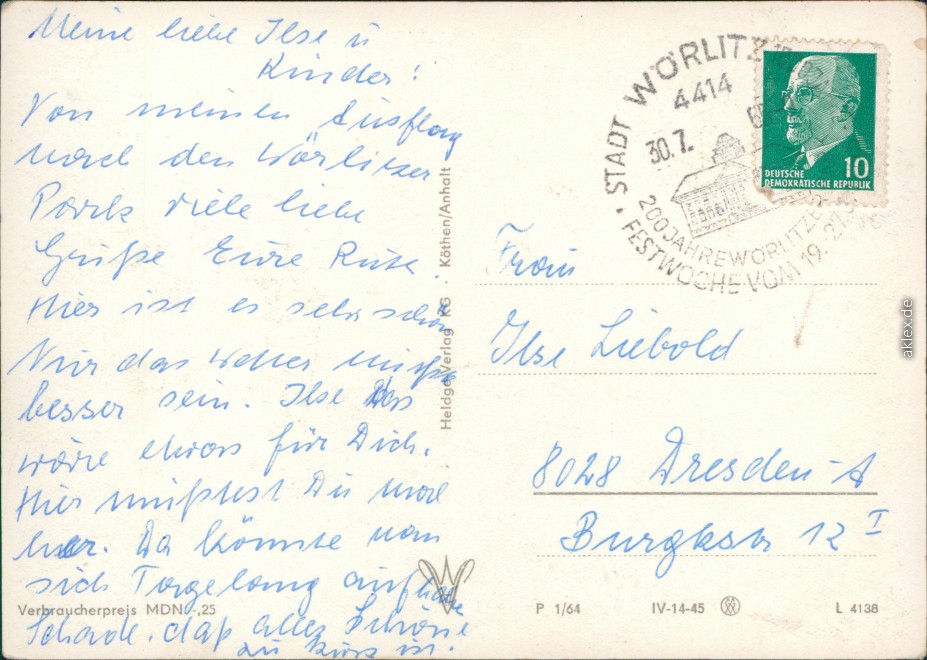 Meine liebe Ilse u
Kinder!
Von meinem Ausflug
nach den Wörlitzer
Park viele liebe
Grüße Eure Ruth.
Hier ist es sehr schön
Nur das Wetter müßte
besser sein. Ilse das
wäre etwas für Dich.
Hier müßtest Du mal
her. Da könnte man
sich Tagelang aufhalten
Schade, daß alles Schöne
zu kurz ist.
Verbraucherpreis MDN -,25
Heldge-Verlag KG · Köthen/Anhalt
STADT WÖRLITZ
4414
30.7.
200 JAHRE WÖRLITZER
FESTWOCHE VOM 19.
DEUTSCHE
DEMOKRATISCHE REPUBLIK
10
Frau
Ilse Liebold
8028 Dresden-A
Burgkstr 12 I
P 1/64 IV-14-45 L 4138
aklex.de